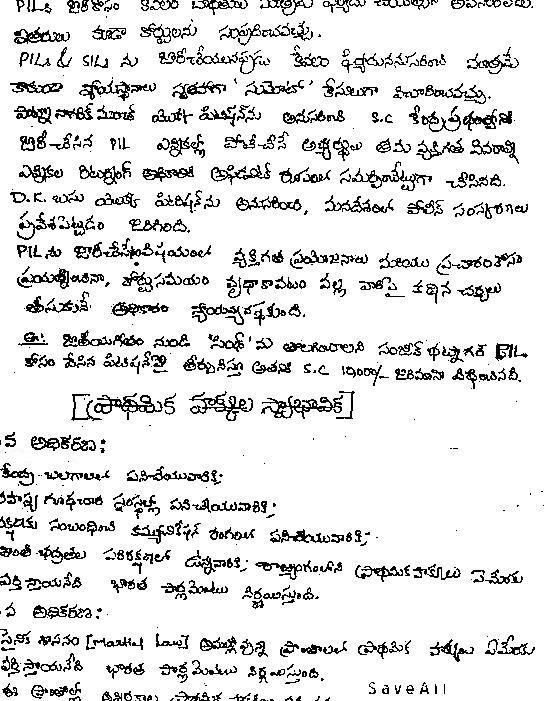 PILs జారీకోసం కేవలం బాధితులు మాత్రమే
ఇతరులు కూడా కోర్టులను సంప్రదించవచ్చు.
PILs & SILs ను జారీచేయునప్పుడు కేవలం ఫిర్యాదుననుసరించి మాత్రమే
కాకుండా న్యాయస్థానాలు స్వతహాగా 'సుమోటో' కేసులుగా విచారించవచ్చు.
మాతృ నాగరిక్ మంచ్ యొక్క పిటిషన్‌ను అనుసరించి S.C కేంద్రప్రభుత్వానికి
జారీ చేసిన PIL ఎన్నికల్లో పోటీచేసే అభ్యర్థులు తమ వ్యక్తిగత వివరాల్ని
ఎన్నికల రిటర్నింగ్ అధికారికి అఫిడవిట్ రూపంలో సమర్పించేట్లుగా చేసినది.
D.K. బసు యొక్క పిటిషన్‌ను అనుసరించి, మనదేశంలో పోలీస్ సంస్కరణలు
ప్రవేశపెట్టడం జరిగింది.
PIL ను జారీచేసేవిషయంలో వ్యక్తిగత ప్రయోజనాలు మరియు ప్రచారంకోసం
ప్రయత్నించినా, కోర్టుసమయం వృథాకావటం వల్ల వారిపై కఠిన చర్యలు
తీసుకునే అధికారం న్యాయవ్యవస్థకుంది.
ఉదా: జాతీయగీతం నుండి 'సింధ్' ను తొలగించాలని సంజీవ్ భట్నాగర్ PIL
కోసం వేసిన పిటిషన్‌పై తీర్పునిస్తూ అతనికి S.C 10,000/- జరిమానా విధించినది.
[ప్రాథమిక హక్కుల స్వాభావిక]
వ అధికరణ:
కేంద్ర బలగాలలో పనిచేయువారికి;
గూఢచార సంస్థల్లో పనిచేయువారికి;
సంబంధించి కమ్యూనికేషన్ రంగంలో పనిచేయువారికి;
శాంతి భద్రతల పరిరక్షణలో ఉన్నవారికి; రాజ్యాంగంలోని ప్రాథమిక హక్కులు ఏ మేరకు
వర్తిస్తాయనేది భారత పార్లమెంటు నిర్ణయిస్తుంది.
వ అధికరణ:
సైనిక శాసనం [martial law] అమల్లో వున్న ప్రాంతాలలో ప్రాథమిక హక్కులు ఏమేరకు
వర్తిస్తాయనేది భారత పార్లమెంటు నిర్ణయిస్తుంది.
ఈ ప్రాంతాల్లో
SaveAll